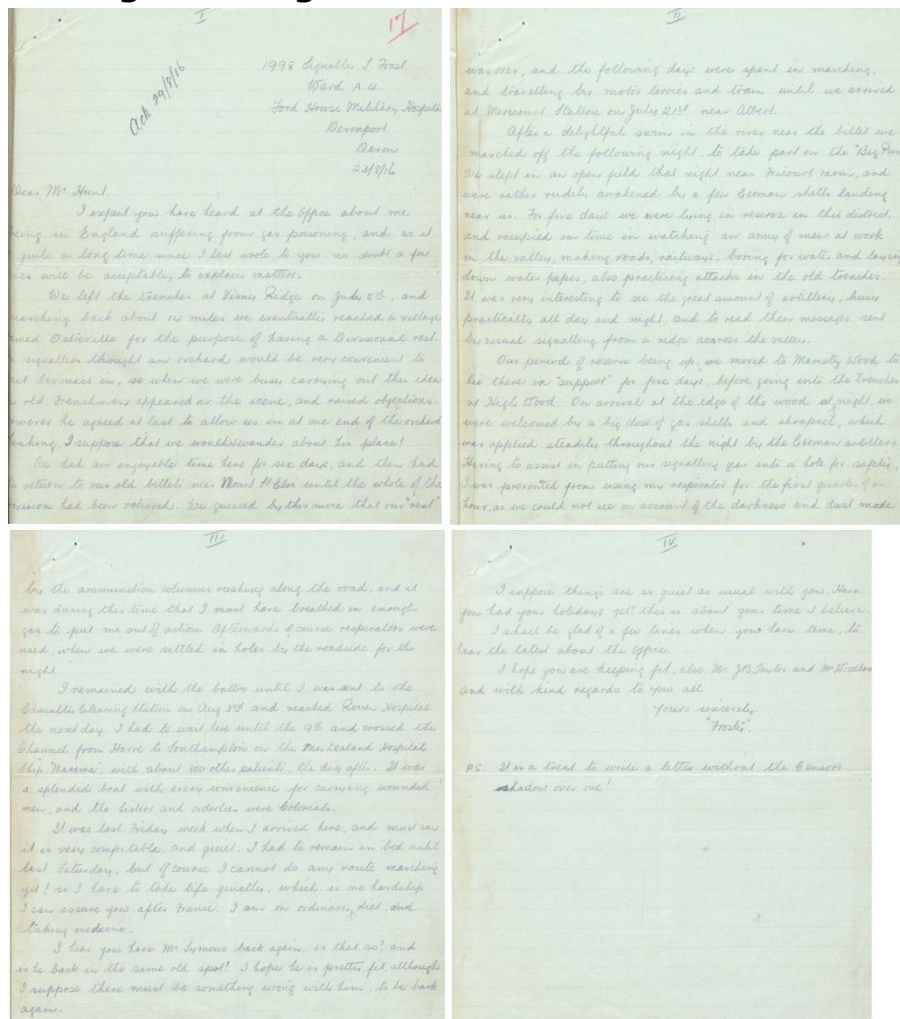 I
17
Ack 29/8/16
1998 Signaller I Frost
Ward A.4.
Ford House Military Hospital
Devonport
Devon
22/8/16
Dear Mr Hunt.
I expect you have heard at the Office about me
being in England suffering from gas poisoning, and as it
quite a long time since I last wrote to you no doubt a few
will be acceptable, to explain matters.
We left the trenches at Vimy Ridge on July 5th, and
marching back about six miles we eventually reached a village
named Ostreville for the purpose of having a Divisional rest.
signallers thought an orchard would be very convenient to
bivouac in, so when we were busy carrying out this idea
old Frenchman appeared on the scene, and raised objections.
However he agreed at last to allow us in at one end of the orchard
thinking, I suppose that we would wander about his place!
We had an enjoyable time here for six days, and then had
to return to our old billets near Mount St Eloi until the whole of the
Division had been relieved. We guessed by this move that our "rest"
II
was over, and the following days were spent in marching,
and travelling by motor lorries and train until we arrived
at Mericourt Station on July 21st near Albert.
After a delightful swim in the river near the billet we
marched off the following night, to take part in the "Big Push"
We slept in an open field that night near Fricourt farm, and
were rather rudely awakened by a few German shells landing
near us. For five days we were lying in reserve in this district,
and occupied our time in watching an army of men at work
in the valley, making roads, railways, boring for water and laying
down water pipes, also practising attacks in the old trenches.
It was very interesting to see the great amount of artillery, busy
practically all day and night, and to read their messages sent
by visual signalling from a ridge across the valley.
Our period of reserve being up, we moved to Mametz Wood to
lie there in "support" for five days, before going into the trenches
at High Wood. On arrival at the edge of the wood at night, we
were welcomed by a big dose of gas shells and shrapnel, which
was applied steadily throughout the night by the German artillery.
Having to assist in putting our signalling gear into a hole for safety,
I was prevented from using my respirator for the first quarter of an
hour, as we could not see on account of the darkness and dust made
III
by the ammunition columns rushing along the road, and it
was during this time that I must have breathed in enough
gas to put me out of action. Afterwards of course respirators were
used, when we were settled in holes by the roadside for the
night.
I remained with the batty until I was sent to the
Casualty Clearing Station on Aug 3rd and reached Rouen Hospital
the next day. I had to wait here until the 9th and crossed the
Channel from Havre to Southampton on the New Zealand Hospital
Ship "Marama", with about 500 other patients, the day after. It was
a splended boat with every convenience for carrying wounded
men, and the Sisters and orderlies were Colonials.
It was last Friday week when I arrived here, and must say
it is very comfortable, and quiet. I had to remain in bed until
last Saturday, but of course I cannot do any route marching
yet! so I have to take life quietly, which is no hardship
I can assure you after France. I am on ordinary diet, and
taking medicine.
I hear you have Mr Symons back again, is that so? and
is he back in the same old spot! I hope he is pretty fit, although
I suppose there must be something wrong with him, to be back
again.
IV
I suppose things are as quiet as usual with you. Have
you had your holidays yet! this is about your time I believe.
I shall be glad of a few lines when you have time, to
hear the latest about the Office.
I hope you are keeping fit, also Mr J B Taylor and Mr Woodham
and with kind regards to you all
Yours sincerely
"Frosty".
P.S. It is a treat to write a letter without the Censors
shadow over one!